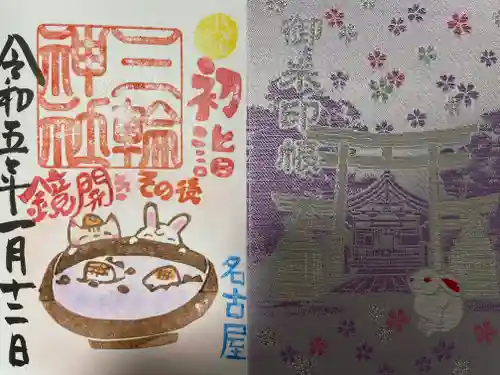 初詣
三輪
神社
鏡開きその後
名古屋
令和五年一月十二日
御朱印帳